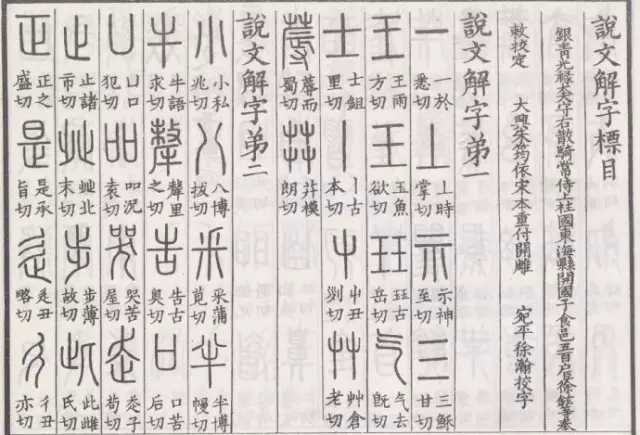 說文解字標目
銀青光祿大夫守右散騎常侍上柱國東海縣開國子食邑五百戶徐鉉等奉
敕校定 大興朱筠依宋本重付開雕 宛平徐瀚校字
說文解字弟一
一 一於悉切 丄 丄時掌切 示 示神至切 三 三穌甘切
王 王雨方切 玉 玉魚欲切 玨 玨古岳切 气 气去旣切
士 士鉏里切 丨 丨古本切 屮 屮丑列切 艸 艸倉老切
蓐 蓐而蜀切 茻 茻模朗切
說文解字弟二
小 小私兆切 八 八博拔切 釆 釆蒲莧切 半 半博幔切
牛 牛語求切 犛 犛里之切 告 告古奧切 口 口苦后切
凵 凵口犯切 吅 吅況袁切 哭 哭苦屋切 走 走子苟切
止 止諸市切 癶 癶北末切 步 步薄故切 此 此雌氏切
正 正之盛切 是 是承旨切 辵 辵丑略切 彳 彳丑亦切